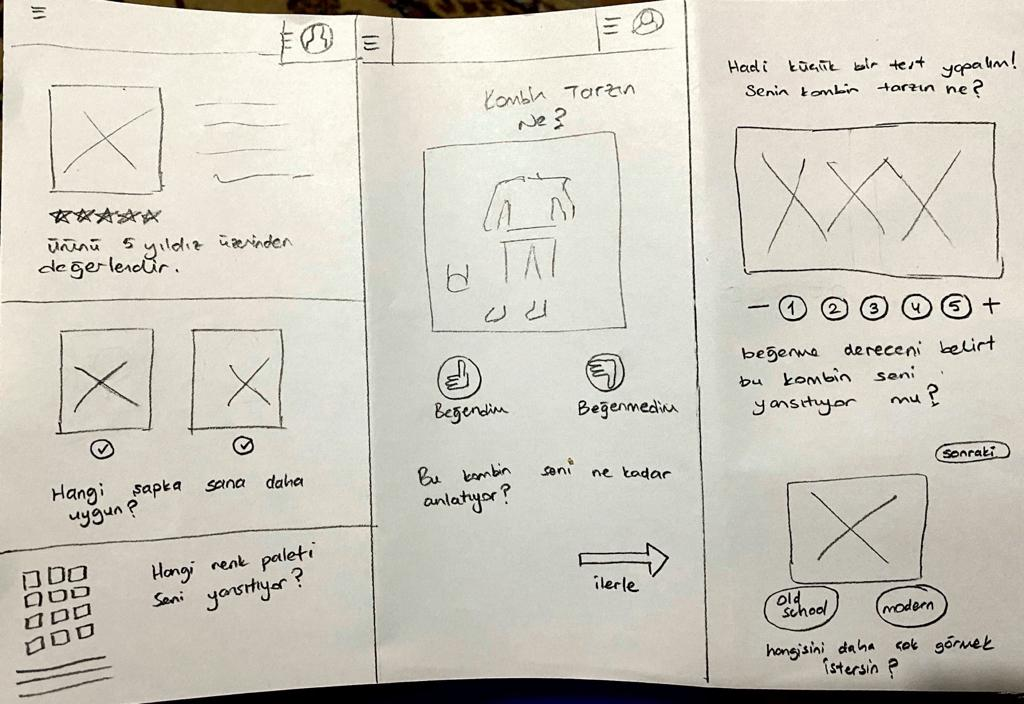 ürünü 5 yıldız üzerinden
değerlendir.
Hangi şapka sana daha
uygun?
Hangi renk paleti
seni yansıtıyor?
Kombin Tarzın
Ne?
Beğendim
Beğenmedim
Bu kombin seni ne kadar
anlatıyor?
ilerle
Hadi küçük bir test yapalım!
Senin kombin tarzın ne?
- 1 2 3 4 5 +
beğenme dereceni belirt
bu kombin seni
yansıtıyor mu?
sonraki
old
school
modern
hangisini daha çok görmek
istersin?